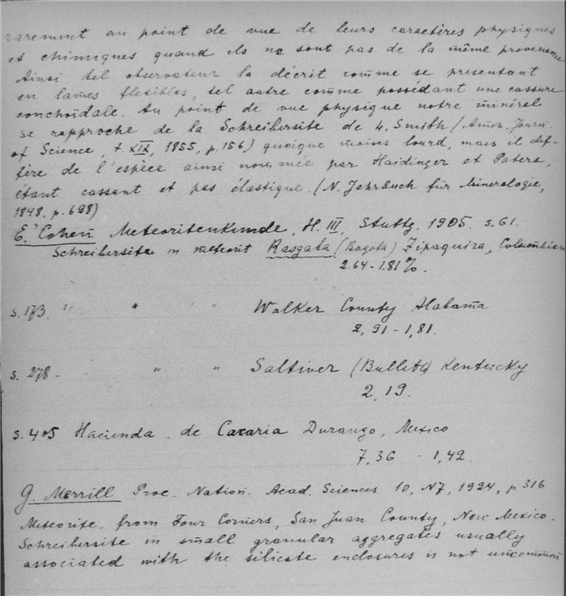 rarement au point de vue de leurs caractères physiques
et chimiques quand ils ne sont pas de la même provenance
Ainsi tel observateur la décrit comme se présentant
en lames flexibles, tel autre comme possédant une cassure
conchoïdale. Au point de vue physique notre minéral
se rapproche de la Schreibersite de L. Smith (Amer. Journ.
of Science, t XIX, 1855, p. 156) quoique moins lourd, mais il dif-
fère de l'espèce ainsi nommée par Haidinger et Patera,
étant cassant et pas élastique. (N. Jahrbuch für Mineralogie,
1848, p. 698)
E. Cohen Meteoritenkunde, H. III, Stuttg. 1905. s. 61.
Schreibersite in meteorit Rasgata (Bogota) Zipaquira, Columbien
2.64-1.81%.
s. 173. " " " Walker County Alabama
2,91-1,81.
s. 278. " " Saltiver (Bullitt) Kentucky
2,19.
s. 405 Hacienda de Cacaria Durango, Mexico
7,36 - 1,42.
G. Merrill Proc. Nation. Acad. Sciences 10, N7, 1924, p 316
Meteorite from Four Corners, San Juan County, New Mexico.
Schreibersite in small granular aggregates usually
associated with the silicate enclosures is not uncommon